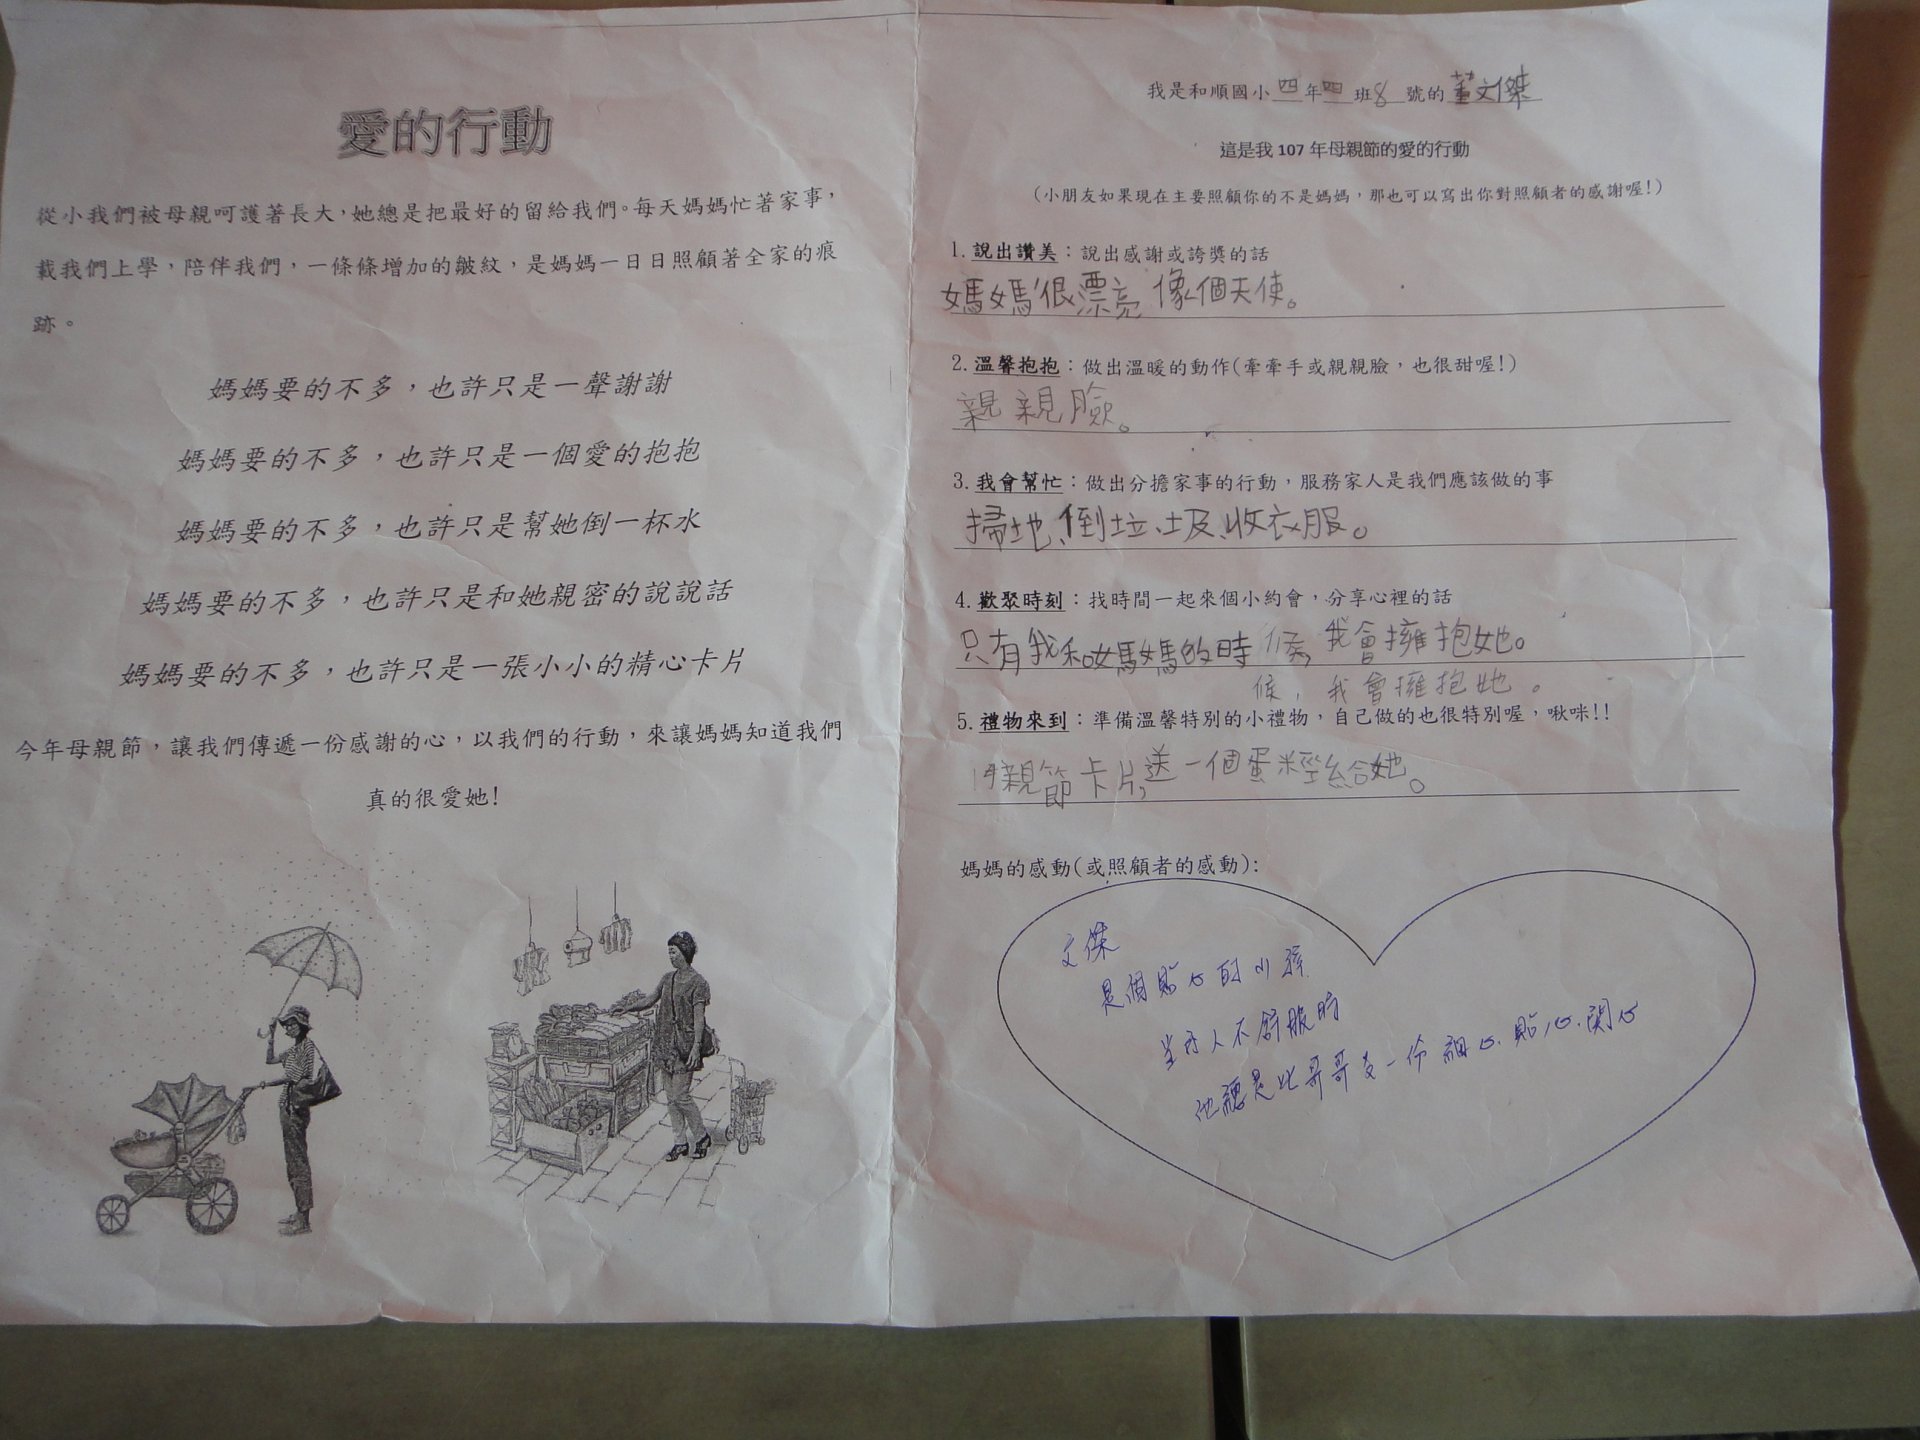 愛的行動
從小我們被母親呵護著長大，她總是把最好的留給我們。每天媽媽忙著家事，
載我們上學，陪伴我們，一條條增加的皺紋，是媽媽一日日照顧著全家的痕
跡。
媽媽要的不多，也許只是一聲謝謝
媽媽要的不多，也許只是一個愛的抱抱
媽媽要的不多，也許只是幫她倒一杯水
媽媽要的不多，也許只是和她親密的說說話
媽媽要的不多，也許只是一張小小的精心卡片
今年母親節，讓我們傳遞一份感謝的心，以我們的行動，來讓媽媽知道我們
真的很愛她!
我是和順國小四年四班8號的董文傑
這是我 107 年母親節的愛的行動
(小朋友如果現在主要照顧你的不是媽媽，那也可以寫出你對照顧者的感謝喔!)
1.說出讚美：說出感謝或誇獎的話
媽媽很漂亮像個天使。
2.溫馨抱抱：做出溫暖的動作(牽牽手或親親臉，也很甜喔!)
親親臉。
3.我會幫忙：做出分擔家事的行動，服務家人是我們應該做的事
掃地、倒垃圾、收衣服。
4.歡聚時刻：找時間一起來個小約會，分享心裡的話
只有我和媽媽的時候，我會擁抱她。
候，我會擁抱她。
5.禮物來到：準備溫馨特別的小禮物，自己做的也很特別喔，啾咪!!
母親節卡片，送一個蛋糕給她。
媽媽的感動(或照顧者的感動):
文傑
是個貼心的小孩
當有人不舒服時
他總是比哥哥多一份細心、貼心、關心